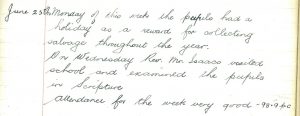 June 25th Monday of this week the pupils had a
holiday as a reward for collecting
salvage throughout the year.
On Wednesday Rev. Mr. Isaacs visited
school and examined the pupils
in Scripture
Attendance for the week very good - 98.9 p.c